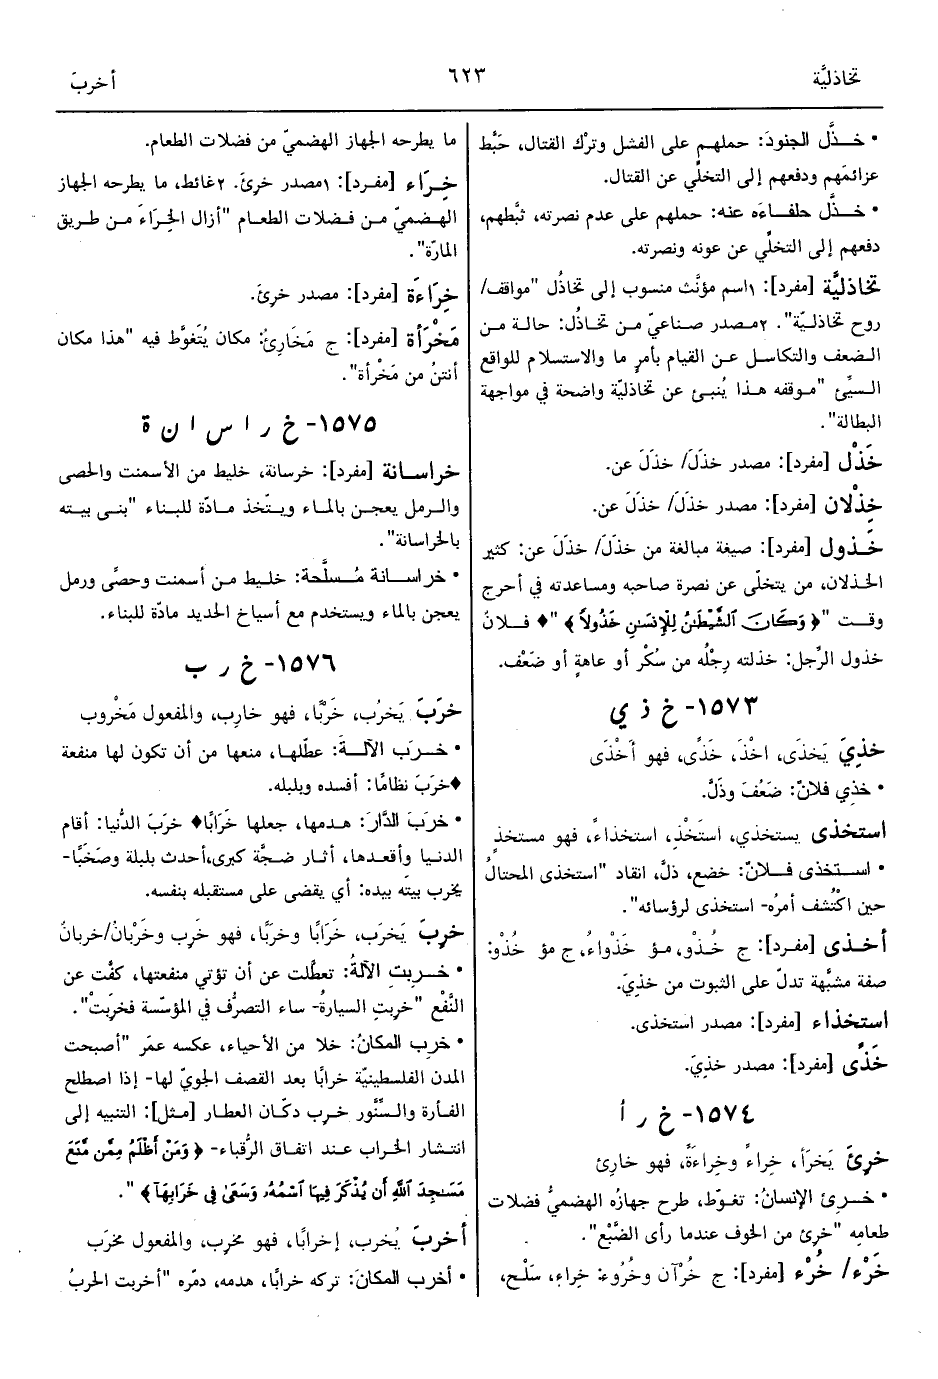 تخاذليَّة
٦٢٣
أخربَ
• خـذَّل الجنودَ: حملهم على الفشل وترْك القتال، حَبَّط
عزائمَهم ودفعهم إلى التخلّي عن القتال.
• خـذَّل حلفـاءَه عنه: حملهم على عدم نصرته، ثبَّطهم،
دفعهم إلى التخلّي عن عونه ونصرته.
تخاذليَّة [مفرد]: ١اسم مؤنَّث منسوب إلى تخاذُل "مواقف/
روح تخاذليّة". ٢مـصدر صناعيّ مـن تخـاذُل: حالة مـن
الـضعف والتكاسل عـن القيام بأمرٍ ما والاستسلام للواقع
السيِّئ "مـوقفه هـذا يُنبـئ عن تخاذليّة واضحة في مواجهة
البطالة".
خَذْل [مفرد]: مصدر خذَلَ/ خذَلَ عن.
خِذْلان [مفرد]: مصدر خذَلَ/ خذَلَ عن.
خَـذول [مفرد]: صيغة مبالغة من خذَلَ/ خذَلَ عن: كثير
الخـذلان، من يتخلّى عن نصرة صاحبه ومساعدته في أحرج
وقـت "﴿ وَكَانَ ٱلشَّيْطَٰنُ لِلْإِنسَٰنِ خَذُولاً ﴾" ♦ فـلانٌ
خذول الرِّجل: خذلته رِجْلُه من سُكْر أو عاهةٍ أو ضَعْف.
١٥٧٣- خ ذ ي
خذِيَ يَخذَى، اخْذَ، خَذًى، فهو أَخْذَى
• خذِي فلانٌ: ضَعُفَ وذَلَّ.
استخذى يستخذي، استَخْذِ، استخذاءً، فهو مستخذٍ
• اسـتخذى فـلانٌ: خضع، ذلَّ، انقاد "استخذى المحتالُ
حين اكْتُشف أمرُه- استخذى لرؤسائه".
أخـذى [مفـرد]: ج خُـذْو، مـؤ خَذْواءُ، ج مؤ خُذْو:
صفة مشبَّهة تدلّ على الثبوت من خذِيَ.
استخذاء [مفرد]: مصدر استخذى.
خَذًى [مفرد]: مصدر خذِيَ.
١٥٧٤- خ ر أ
خرِئَ يَخرَأ، خِراءً وخِراءَةً، فهو خارِئ
• خـرِئ الإنسانُ: تغـوّط، طرح جهازُه الهضميُّ فضلات
طعامِه "خرِئ من الخوف عندما رأى الضَّبْع".
خَرْء/ خُرْء [مفرد]: ج خُرْآن وخُروء: خِراء، سَلْح،
ما يطرحه الجهاز الهضميّ من فضلات الطعام.
خِـرَاء [مفـرد]: ١مصدر خرِئَ. ٢غائط، ما يطرحه الجهاز
الهـضميّ مـن فـضلات الطعام "أزال الخِراءَ مـن طريق
المارّة".
خِرَاءَة [مفرد]: مصدر خرِئَ.
مَخْرَأة [مفرد]: ج مَخَارِئُ: مكان يُتَغوَّط فيه "هذا مكان
أنتنُ من مَخْرأة".
١٥٧٥- خ ر ا س ا ن ة
خراسـانة [مفرد]: خرسانة، خليط من الأسمنت والحصى
والـرمل يعجـن بالمـاء ويـتّخذ مـادّة للبـناء "بنـى بيـته
بالخراسانة".
• خراسـانة مُـسلَّحة: خلـيط مـن أسمنت وحصًى ورمل
يعجن بالماء ويستخدم مع أسياخ الحديد مادّة للبناء.
١٥٧٦- خ ر ب
خرَبَ يَخرُب، خَرْبًا، فهو خارِب، والمفعول مَخْروب
• خـرَب الآلـةَ: عطّلها، منعها من أن تكون لها منفعة
♦خرَبَ نظامًا: أفسده وبلبله.
• خرَبَ الدَّارَ: هـدمها، جعلها خَرَابًا♦ خرَبَ الدُّنيا: أقام
الدنيا وأقعدها، أثـار ضـجَّة كبرى،أحدث بلبلة وصَخَبًا-
يخرب بيتَه بيده: أي يقضى على مستقبله بنفسه.
خرِبَ يَخرَب، خَرَابًا وخرَبًا، فهو خَرِب وخَرْبَانُ/خربانٌ
• خـرِبتِ الآلةُ: تعطّلت عن أن تؤتي منفعتها، كفّت عن
النَّفْع "خرِبتِ السيارةُ- ساء التصرُّف في المؤسّسة فخرِبَتْ".
• خرِب المكانُ: خلا من الأحياء، عكسه عمَر "أصبحت
المدن الفلسطينيّة خرابًا بعد القصف الجويّ لها- إذا اصطلح
الفـأرة والسِّنَّور خـرِب دكّان العطار [مثل]: التنبيه إلى
انتشار الخراب عنـد اتفـاق الرُّقباء- ﴿ وَمَنْ أَظْلَمُ مِمَّن مَّنَعَ
مَسَٰجِدَ ٱللَّهِ أَن يُذْكَرَ فِيهَا ٱسْمُهُۥ وَسَعَىٰ فِى خَرَابِهَآ ﴾ ".
أخربَ يُخرب، إخرابًا، فهو مخرِب، والمفعول مخرَب
• أخرب المكانَ: تركه خرابًا، هدمه، دمّره "أخربت الحربُ